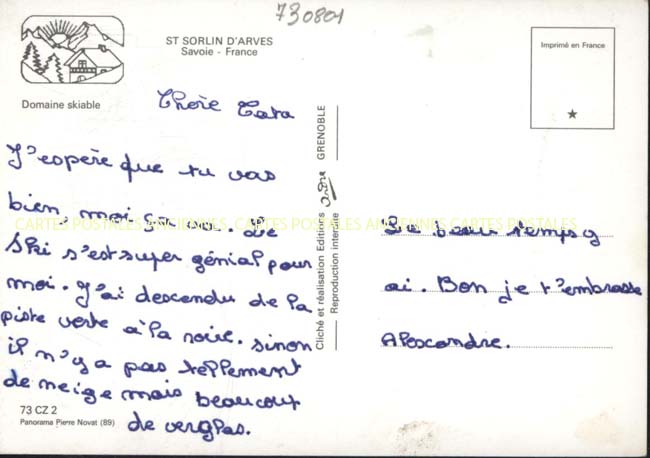 730801
ST SORLIN D'ARVES
Savoie - France
Domaine skiable
Imprimé en France
Chère Tata
J'espère que tu vas
bien, moi ça va. Le
Ski s'est super génial pour
moi. J'ai descendu de la
piste verte à la noire. sinon
il n'y a pas tellement
de neige mais beaucoup
de verglas.
73 CZ 2
Panorama Pierre Novat (89)
Cliché et réalisation Editions André GRENOBLE
Reproduction interdite
Le beau temps y
ai. Bon je t'embrasse
Alexandre.
CARTES POSTALES ANCIENNES CARTES POSTALES ANCIENNES CARTES POSTALES